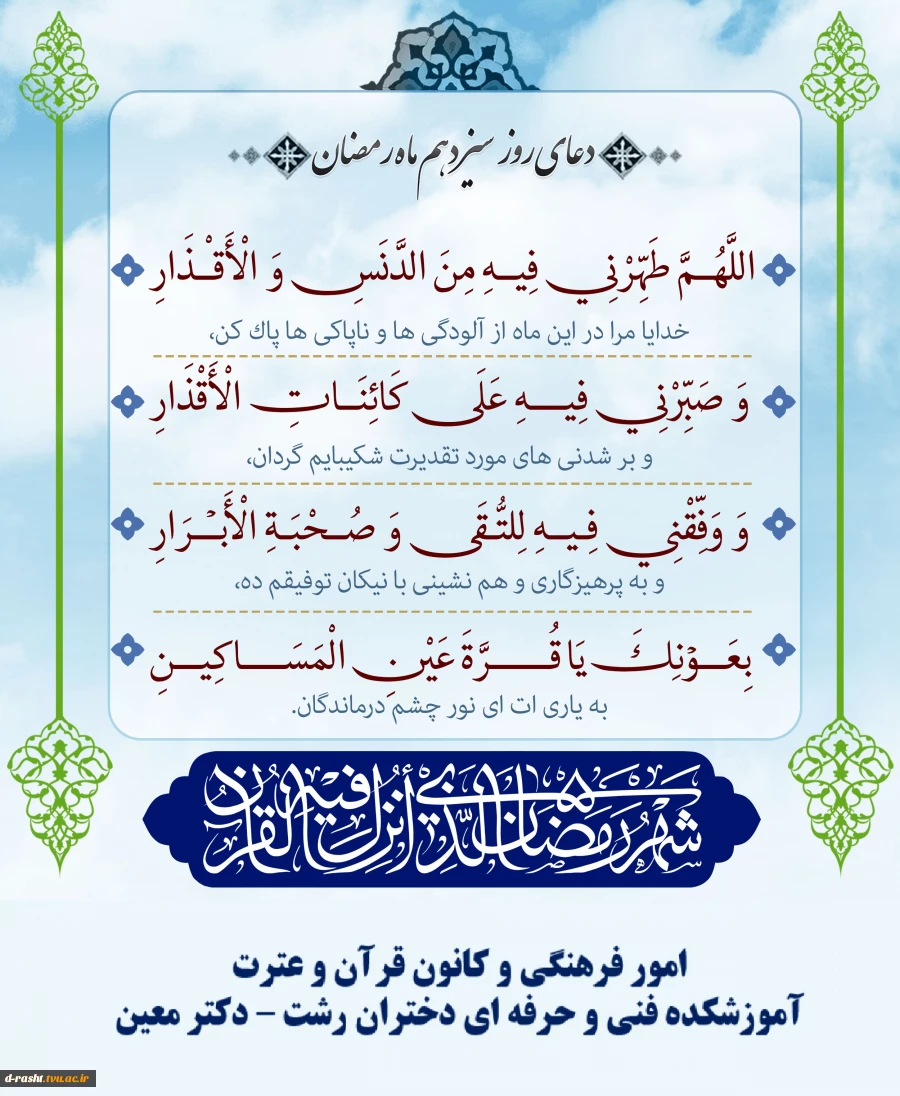 دعای روز سیزدهم ماه رمضان
اللَّهُمَّ طَهِّرْنِي فِيهِ مِنَ الدَّنَسِ وَ الْأَقْذَارِ
خدایا مرا در این ماه از آلودگی ها و ناپاکی ها پاك کن،
وَ صَبِّرْنِي فِيهِ عَلَى كَائِنَاتِ الْأَقْذَارِ
و بر شدنی های مورد تقدیرت شکیبایم گردان،
وَ وَفِّقْنِي فِيهِ لِلتُّقَى وَ صُحْبَةِ الْأَبْرَارِ
و به پرهیزگاری و هم نشینی با نیکان توفیقم ده،
بِعَوْنِكَ يَا قُرَّةَ عَيْنِ الْمَسَاكِينِ
به یاری ات ای نور چشم درماندگان.
شهر رمضان الذي أنزل فيه القرآن
امور فرهنگی و کانون قرآن و عترت
آموزشکده فنی و حرفه ای دختران رشت - دکتر معین
d-rasht.tvu.ac.ir